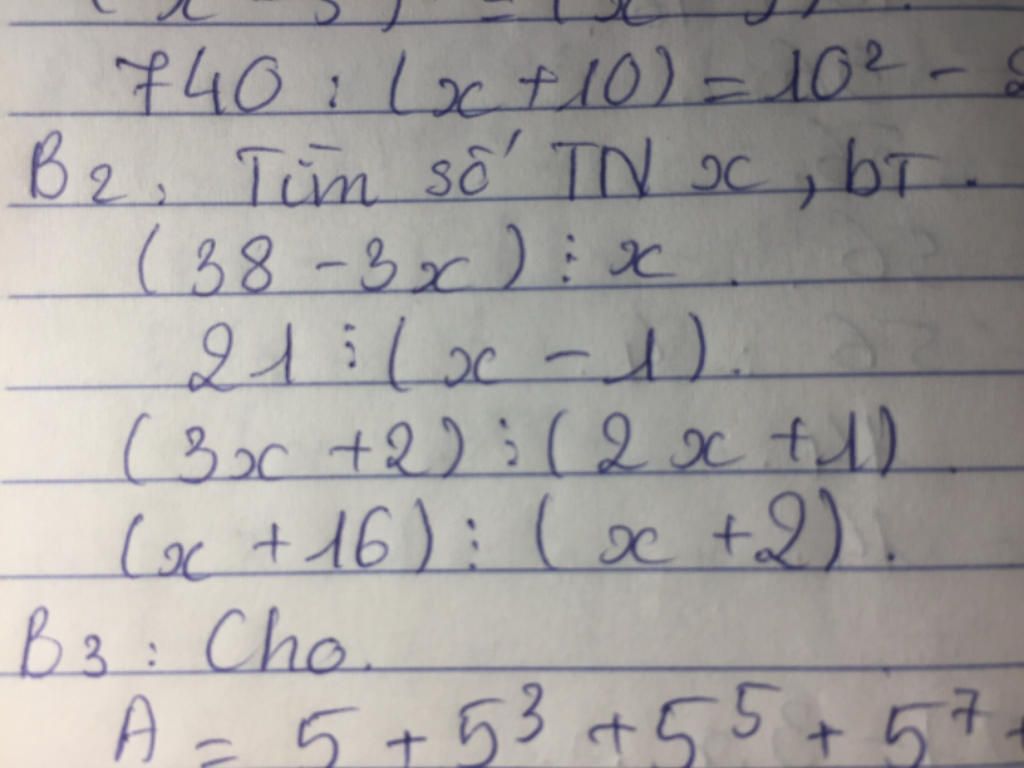 740 : (x + 10) = 10² -
B2, Tìm số TN x, bT.
(38 - 3x) ⋮ x.
21 ⋮ (x - 1).
(3x + 2) ⋮ (2x + 1).
(x + 16) ⋮ (x + 2).
B3 : Cho.
A = 5 + 5³ + 5⁵ + 5⁷ +